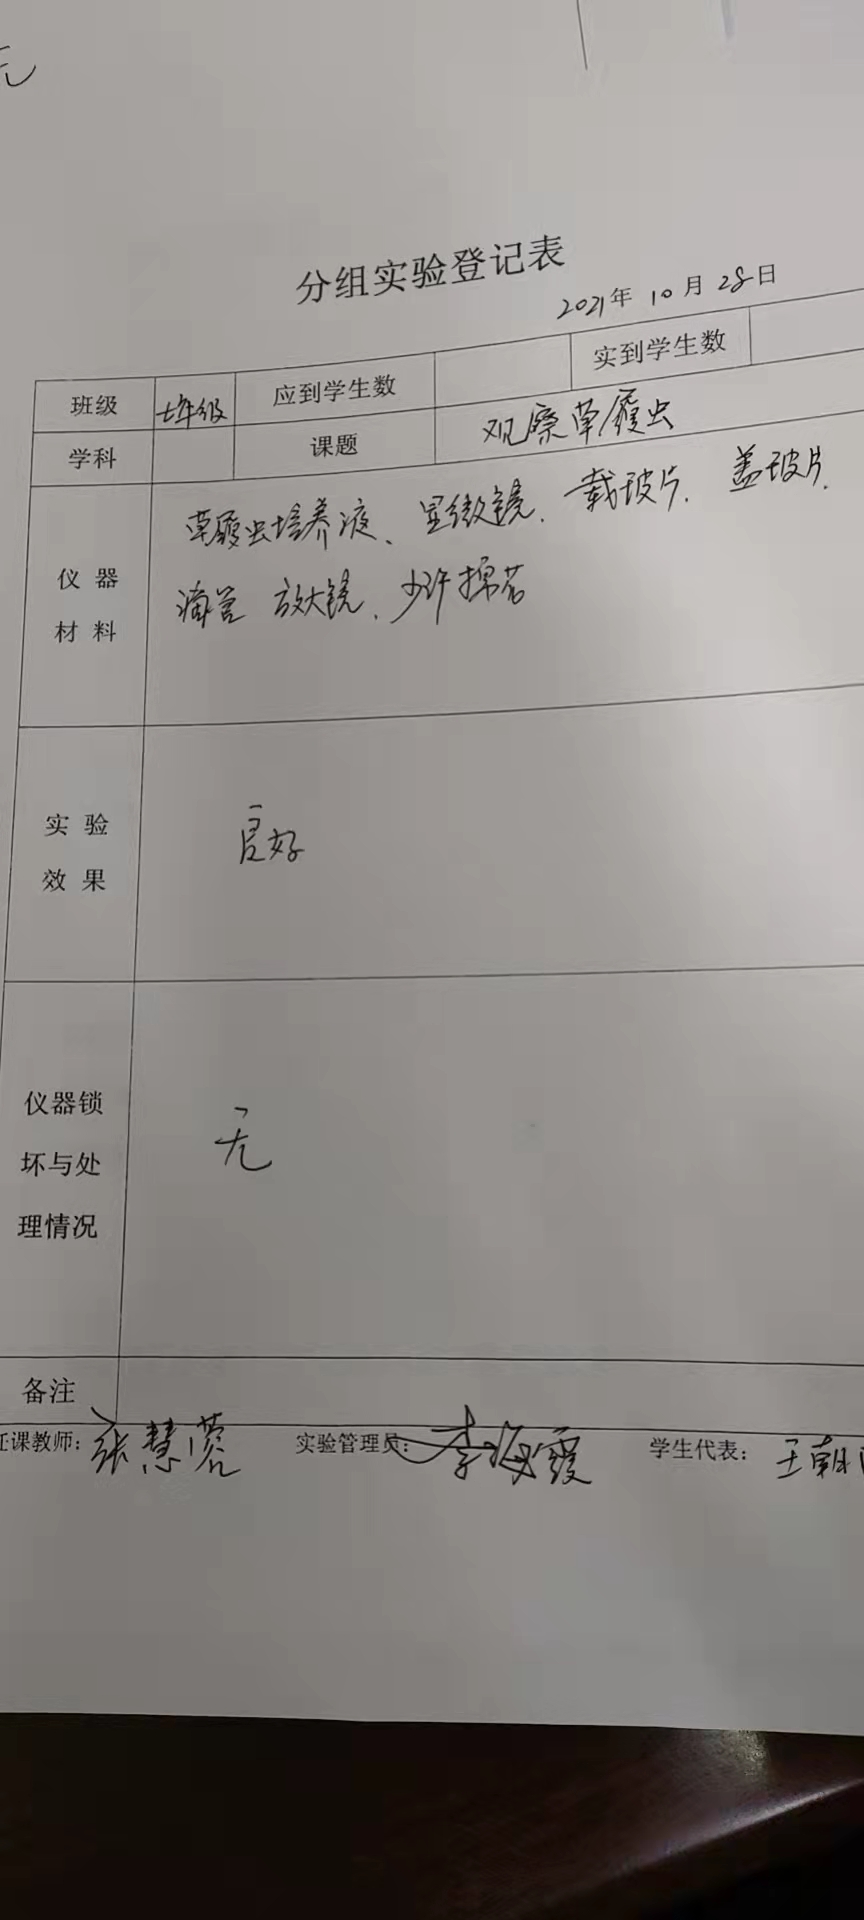 无
分组实验登记表
2021年 10月 28日
班级 七年级 应到学生数 实到学生数
学科 课题 观察草履虫
仪器材料 草履虫培养液、显微镜、载玻片、盖玻片、
滴管 放大镜、少许棉花
实验效果 良好
仪器锁坏与处理情况 无
备注
任课教师：张慧蓉 实验管理员：李海霞 学生代表：王朝